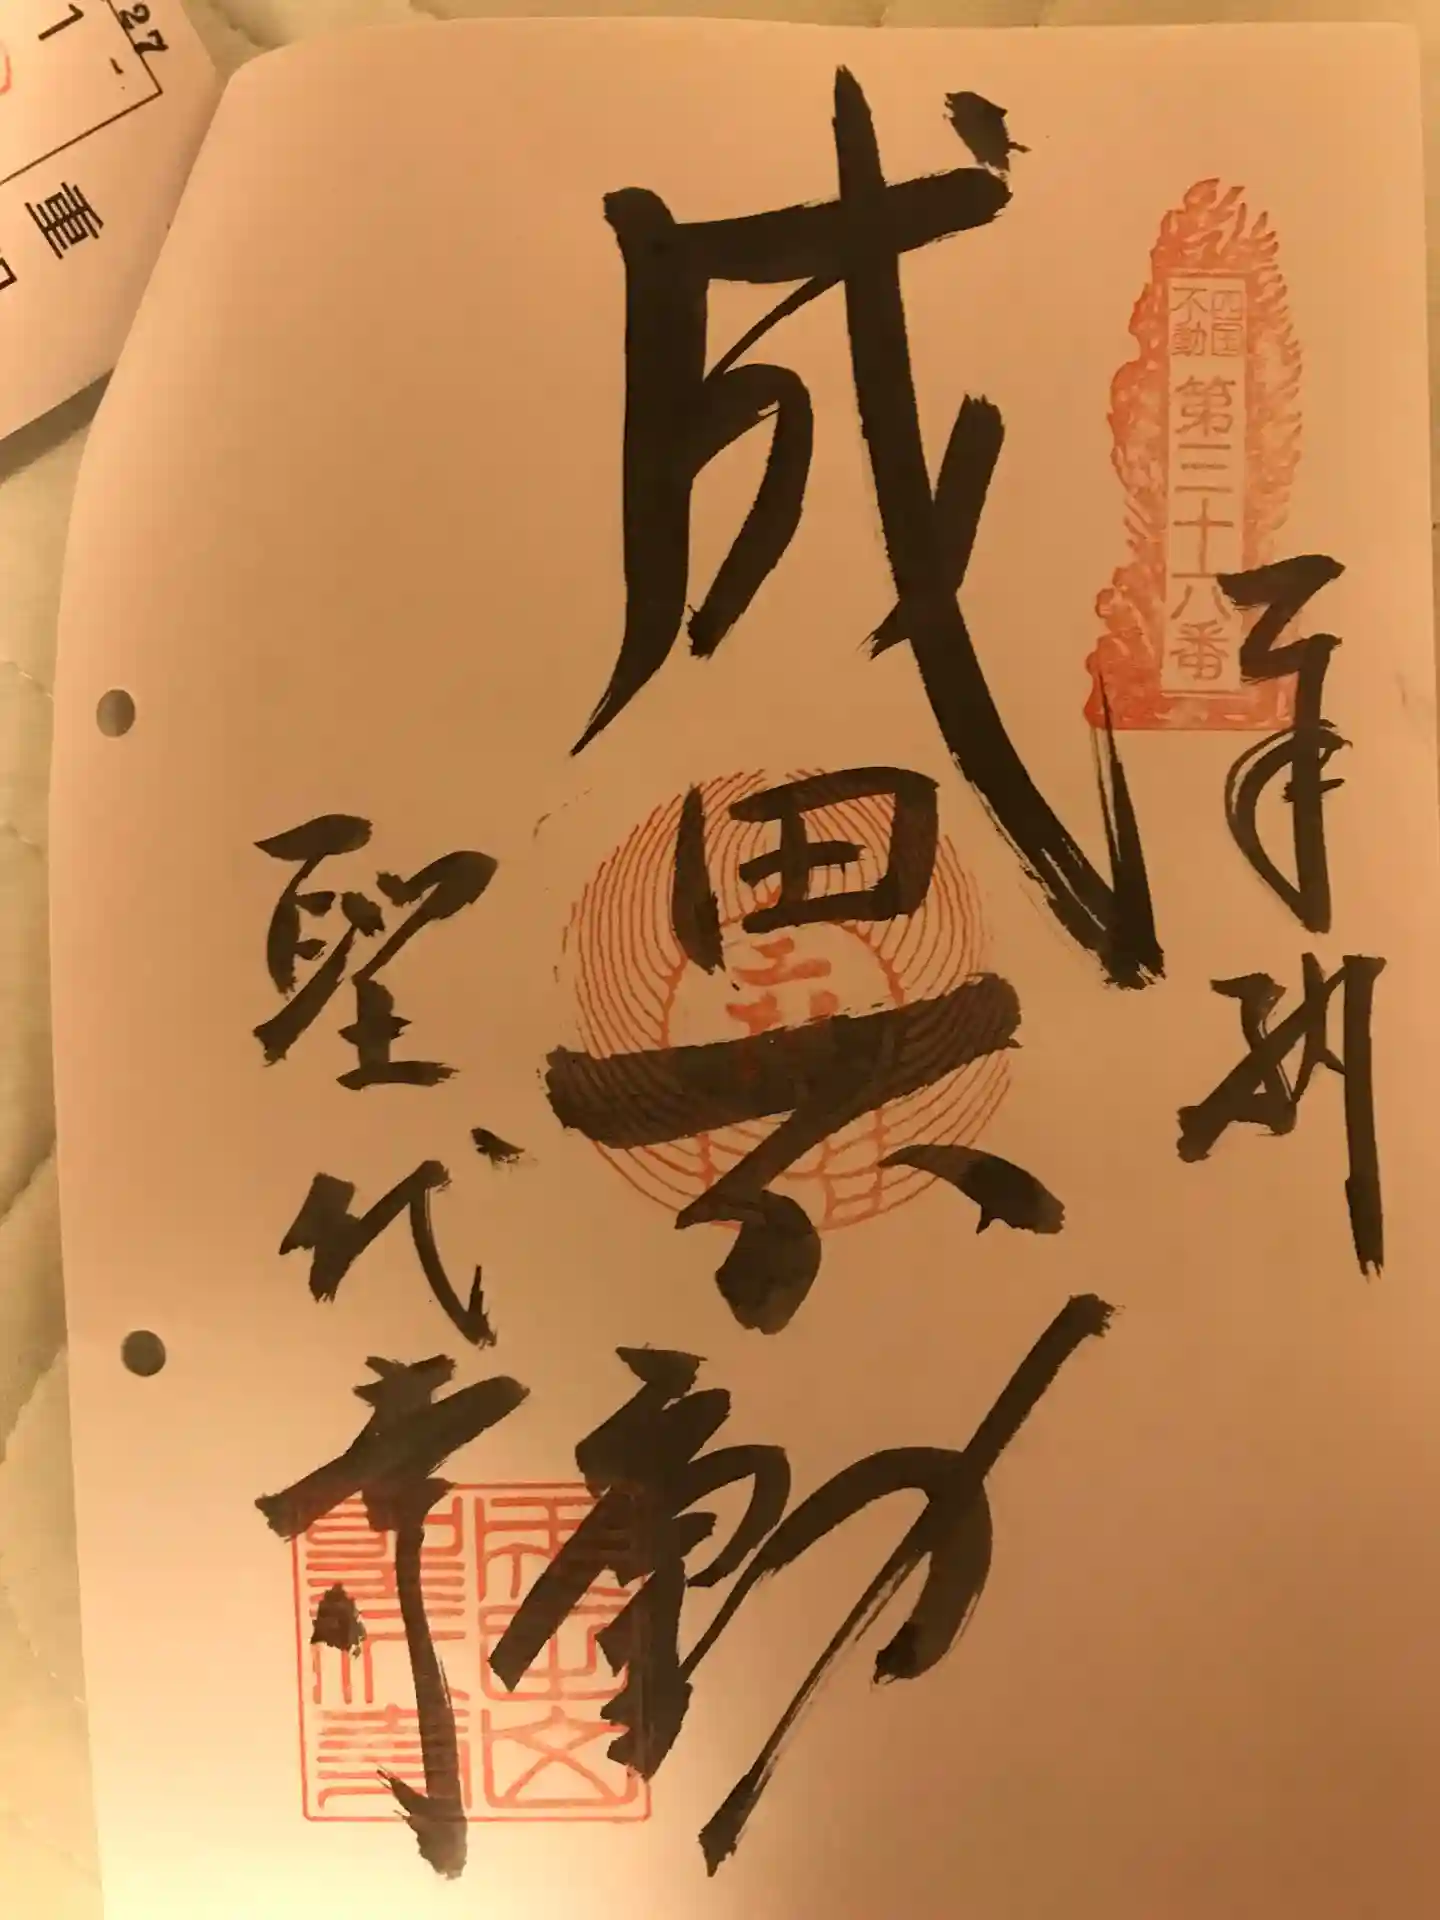 奉納
四国
不動
第三十六番
成田不動
聖代寺
27
1
重